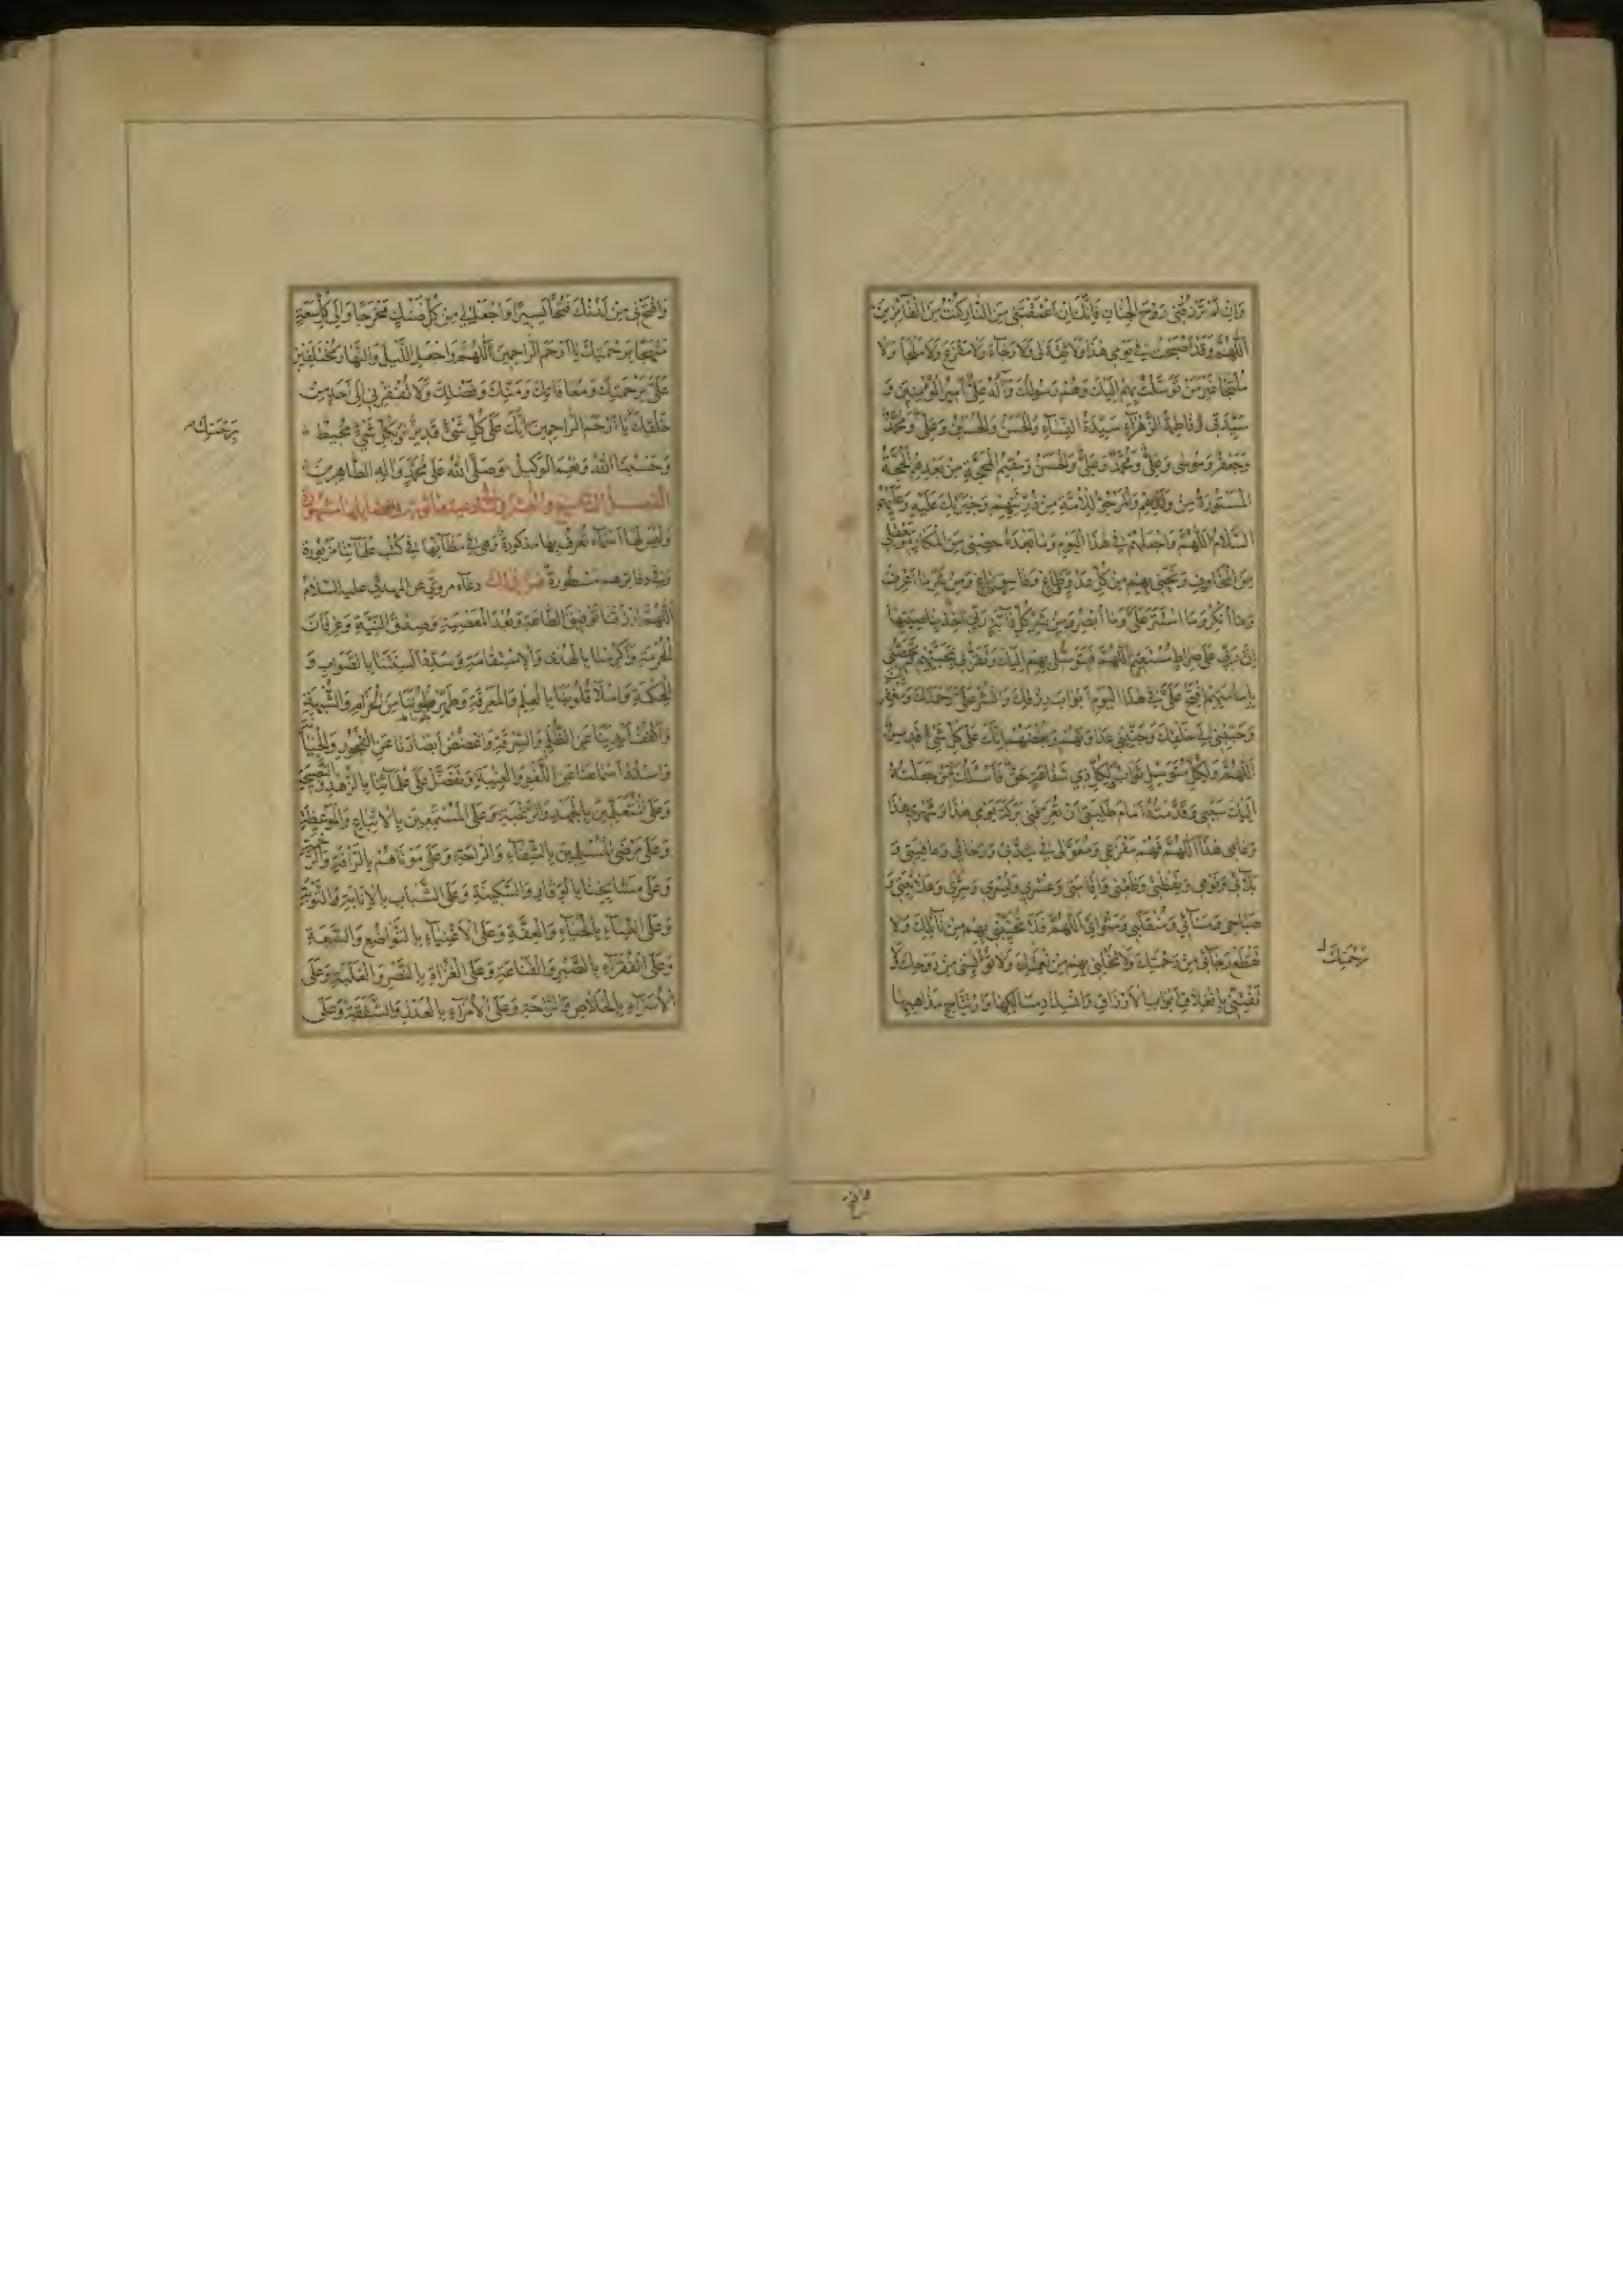 وَاِنْ لَمْ تَرْزُقْنِي رَوْحَ الْجِنَانِ فَاِنَّكَ اِنْ اَعْتَقْتَنِي مِنَ النَّارِ كُنْتُ مِنَ الْفَآئِزِينَ
اَللّٰهُمَّ وَقَدْ اَصْبَحْتُ فِي يَوْمِي هٰذَا وَلَا ثِقَةَ لِي وَلَا رَجَآءَ وَلَا مَفْزَعَ وَلَا مَلْجَأَ وَلَا
مُلْتَجَأَ غَيْرُ مَنْ تَوَسَّلْتُ بِهِمْ اِلَيْكَ وَهُمْ رَسُولُكَ وَآلُهُ عَلِيٌّ اَمِيرُ الْمُؤْمِنِينَ وَ
سَيِّدَتِي فَاطِمَةُ الزَّهْرَآءِ سَيِّدَةُ النِّسَآءِ وَالْحَسَنُ وَالْحُسَيْنُ وَعَلِيٌّ وَمُحَمَّدٌ
وَجَعْفَرٌ وَمُوسٰى وَعَلِيٌّ وَمُحَمَّدٌ وَعَلِيٌّ وَالْحَسَنُ وَمُقِيمُ الْمَحَجَّةِ مِنْ بَعْدِهِمُ الْحُجَّةُ
الْمَسْتُورَةُ مِنْ وُلْدِهِمْ وَالْمَرْجُوُّ لِلْاُمَّةِ مِنْ ذُرِّيَّتِهِمْ وَخِيَرَتِكَ عَلَيْهِ وَعَلَيْهِمُ
السَّلَامُ اَللّٰهُمَّ فَاجْعَلْهُمْ فِي هٰذَا الْيَوْمِ وَمَا بَعْدَهُ حِصْنِي مِنَ الْمَكَارِهِ وَمَعْقِلِي
مِنَ الْمَخَاوِفِ وَنَجِّنِي بِهِمْ مِنْ كُلِّ عَدُوٍّ وَطَاغٍ وَفَاسِقٍ وَبَاغٍ وَمِنْ شَرِّ مَا اَعْرِفُ
وَمَا اُنْكِرُ وَمَا اسْتَتَرَ عَلَيَّ وَمَا اُبْصِرُ وَمِنْ شَرِّ كُلِّ دَآبَّةٍ رَبِّي آخِذٌ بِنَاصِيَتِهَا
اِنَّ رَبِّي عَلٰى صِرَاطٍ مُسْتَقِيمٍ اَللّٰهُمَّ فَبِتَوَسُّلِي بِهِمْ اِلَيْكَ وَتَقَرُّبِي بِمَحَبَّتِهِمْ
بِاِمَامَتِهِمْ اِفْتَحْ عَلَيَّ فِي هٰذَا الْيَوْمِ اَبْوَابَ رِزْقِكَ وَانْشُرْ عَلَيَّ رَحْمَتَكَ وَمَغْفِرَ
وَحَبِّبْنِي اِلٰى خَلْقِكَ وَجَنِّبْنِي عَدَاوَتَهُمْ وَبُغْضَهُمْ اِنَّكَ عَلٰى كُلِّ شَيْءٍ قَدِيرٌ
اَللّٰهُمَّ وَلِكُلِّ مُتَوَسِّلٍ ثَوَابٌ وَلِكُلِّ ذِي شَفَاعَةٍ حَقٌّ فَاَسْئَلُكَ بِمَنْ جَعَلْتُهُ
اِلَيْكَ سَبَبِي وَقَدَّمْتُهُ اَمَامَ طَلِبَتِي اَنْ تُعَرِّفَنِي بَرَكَةَ يَوْمِي هٰذَا وَشَهْرِي هٰذَا
وَعَامِي هٰذَا اَللّٰهُمَّ فَهُمْ مَفْزَعِي وَمُعَوَّلِي فِي شِدَّتِي وَرَخَآئِي وَعَافِيَتِي وَ
بَلَآئِي وَنَوْمِي وَيَقْظَتِي وَظَعْنِي وَاِقَامَتِي وَعُسْرِي وَيُسْرِي وَسِرِّي وَعَلَانِيَتِي وَ
صَبَاحِي وَمَسَآئِي وَمُنْقَلَبِي وَمَثْوَايَ اَللّٰهُمَّ فَلَا تُخَيِّبْنِي بِهِمْ مِنْ نَآئِلِكَ وَلَا
تَقْطَعْ رَجَآئِي مِنْ رَحْمَتِكَ وَلَا تُخْلِنِي بِهِمْ مِنْ نِعْمَتِكَ وَلَا تُؤْيِسْنِي مِنْ رَوْحِكَ وَلَا
تَفْتِنِّي بِاِنْغِلَاقِ اَبْوَابِ الْاَرْزَاقِ وَانْسِدَادِ مَسَالِكِهَا وَارْتِتَاجِ مَذَاهِبِهَا
رَحْمَتِكَ
وَافْتَحْ لِي مِنْ لَدُنْكَ فَتْحًا يَسِيرًا وَاجْعَلْ لِي مِنْ كُلِّ ضَنْكٍ مَخْرَجًا وَاِلٰى كُلِّ سَعَةٍ
مَنْهَجًا بِرَحْمَتِكَ يَا اَرْحَمَ الرَّاحِمِينَ اَللّٰهُمَّ وَاجْعَلِ اللَّيْلَ وَالنَّهَارَ مُخْتَلِفَيْنِ
عَلَيَّ بِرَحْمَتِكَ وَمُعَافَاتِكَ وَمَنِّكَ وَفَضْلِكَ وَلَا تُفْقِرْنِي اِلٰى اَحَدٍ مِنْ
خَلْقِكَ يَا اَرْحَمَ الرَّاحِمِينَ اِنَّكَ عَلٰى كُلِّ شَيْءٍ قَدِيرٌ وَبِكُلِّ شَيْءٍ مُحِيطٌ
وَحَسْبُنَا اللّٰهُ وَنِعْمَ الْوَكِيلُ وَصَلَّى اللّٰهُ عَلٰى مُحَمَّدٍ وَآلِهِ الطَّاهِرِينَ
الفصل التاسع والعشرون في ادعية مأثورة
وَلَيْسَ لَهَا اَسْمَآءٌ تُعْرَفُ بِهَا مَذْكُورَةٌ وَهِيَ فِي مَظَآنِّهَا فِي كُتُبِ عُلَمَآئِنَا مَزْبُورَةٌ
وَفِي دَفَاتِرِهِمْ مَسْطُورَةٌ فمن ذلك دعآء مروي عن المهدي عليه السلام
اَللّٰهُمَّ ارْزُقْنَا تَوْفِيقَ الطَّاعَةِ وَبُعْدَ الْمَعْصِيَةِ وَصِدْقَ النِّيَّةِ وَعِرْفَانَ
الْحُرْمَةِ وَاَكْرِمْنَا بِالْهُدٰى وَالْاِسْتِقَامَةِ وَسَدِّدْ اَلْسِنَتَنَا بِالصَّوَابِ وَ
الْحِكْمَةِ وَامْلَأْ قُلُوبَنَا بِالْعِلْمِ وَالْمَعْرِفَةِ وَطَهِّرْ بُطُونَنَا مِنَ الْحَرَامِ وَالشُّبْهَةِ
وَاكْفُفْ اَيْدِيَنَا عَنِ الظُّلْمِ وَالسَّرِقَةِ وَاغْضُضْ اَبْصَارَنَا عَنِ الْفُجُورِ وَالْخِيَانَةِ
وَاسْدُدْ اَسْمَاعَنَا عَنِ اللَّغْوِ وَالْغِيبَةِ وَتَفَضَّلْ عَلٰى عُلَمَآئِنَا بِالزُّهْدِ وَالنَّصِيحَةِ
وَعَلَى الْمُتَعَلِّمِينَ بِالْجُهْدِ وَالرَّغْبَةِ وَعَلَى الْمُسْتَمِعِينَ بِالْاِتِّبَاعِ وَالْمَوْعِظَةِ
وَعَلٰى مَرْضَى الْمُسْلِمِينَ بِالشِّفَآءِ وَالرَّاحَةِ وَعَلٰى مَوْتَاهُمْ بِالرَّأْفَةِ وَالرَّحْمَةِ
وَعَلٰى مَشَايِخِنَا بِالْوَقَارِ وَالسَّكِينَةِ وَعَلَى الشَّبَابِ بِالْاِنَابَةِ وَالتَّوْبَةِ
وَعَلَى النِّسَآءِ بِالْحَيَآءِ وَالْعِفَّةِ وَعَلَى الْاَغْنِيَآءِ بِالتَّوَاضُعِ وَالسَّعَةِ
وَعَلَى الْفُقَرَآءِ بِالصَّبْرِ وَالْقَنَاعَةِ وَعَلَى الْغُزَاةِ بِالنَّصْرِ وَالْغَلَبَةِ وَعَلَى
الْاُسَرَآءِ بِالْخَلَاصِ وَالرَّاحَةِ وَعَلَى الْاُمَرَآءِ بِالْعَدْلِ وَالشَّفَقَةِ وَعَلَى